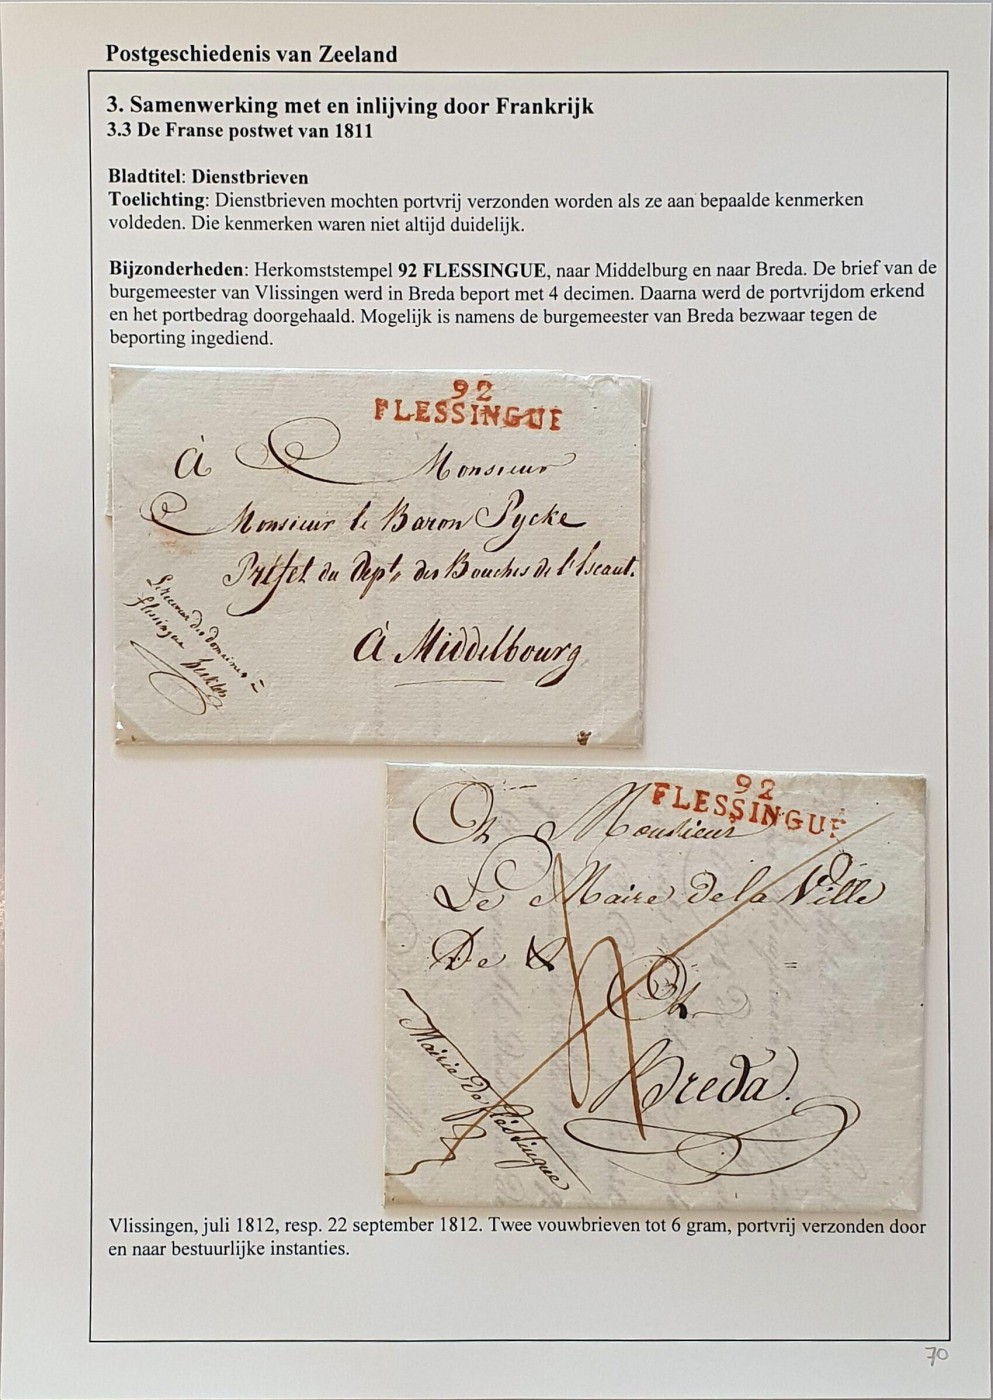 Postgeschiedenis van Zeeland
3. Samenwerking met en inlijving door Frankrijk
3.3 De Franse postwet van 1811
Bladtitel: Dienstbrieven
Toelichting: Dienstbrieven mochten portvrij verzonden worden als ze aan bepaalde kenmerken
voldeden. Die kenmerken waren niet altijd duidelijk.
Bijzonderheden: Herkomststempel 92 FLESSINGUE, naar Middelburg en naar Breda. De brief van de
burgemeester van Vlissingen werd in Breda beport met 4 decimen. Daarna werd de portvrijdom erkend
en het portbedrag doorgehaald. Mogelijk is namens de burgemeester van Breda bezwaar tegen de
beporting ingediend.
92
FLESSINGUE
à Monsieur
Monsieur le Baron Pycke
Préfet du Dept. des Bouches de l'Escaut.
à Middelbourg
Le receveur des domaines à
flessingue
92
FLESSINGUE
Monsieur
Le Maire de la Ville
De
Breda.
Mairie de flessingue
Vlissingen, juli 1812, resp. 22 september 1812. Twee vouwbrieven tot 6 gram, portvrij verzonden door
en naar bestuurlijke instanties.
70